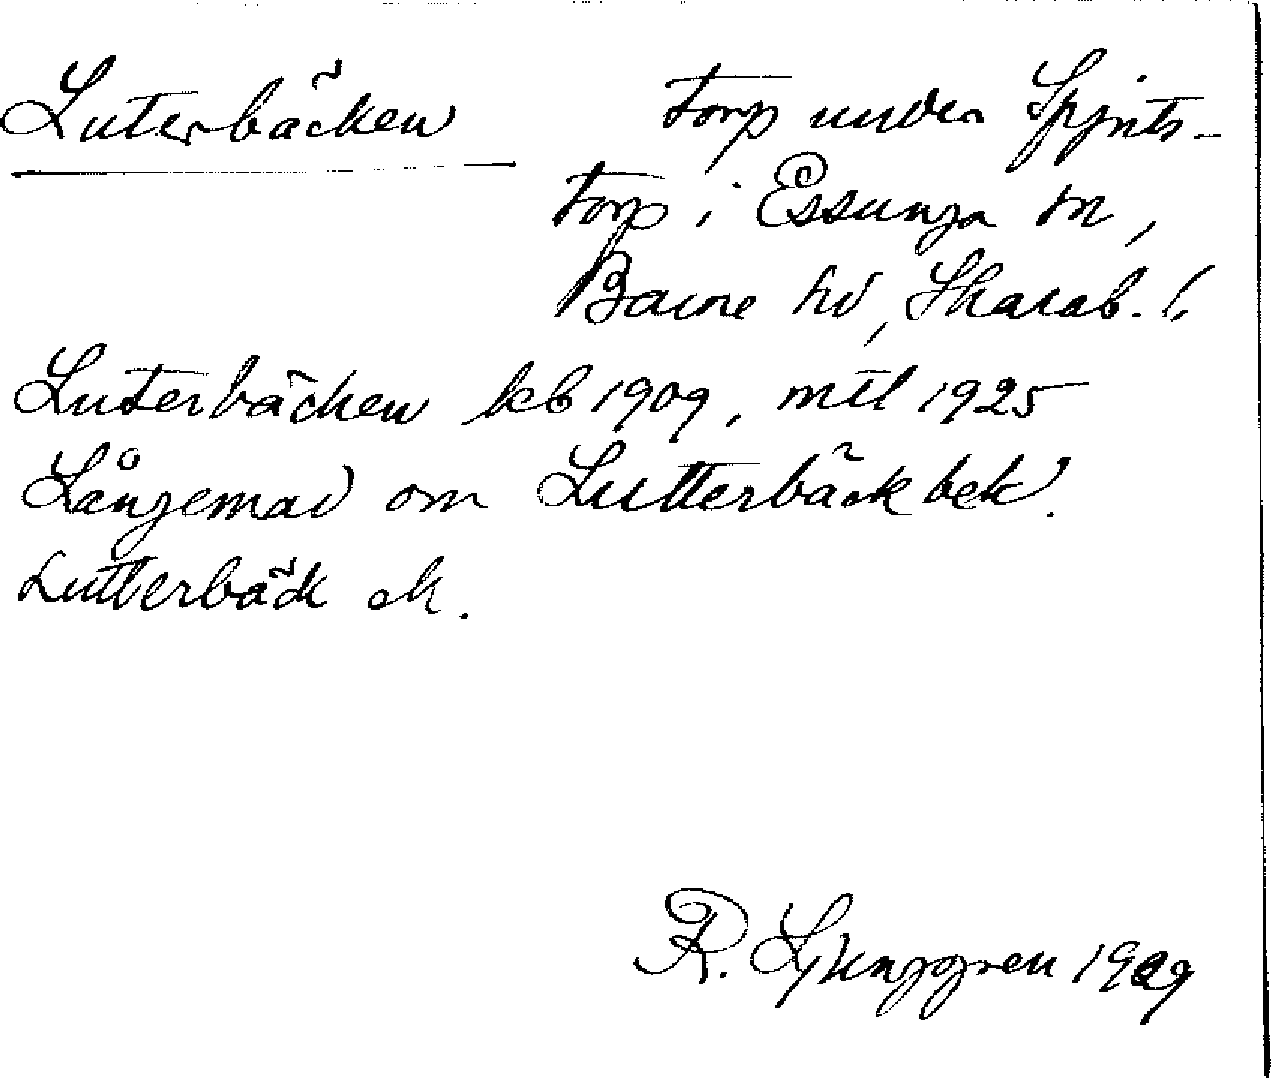 Luterbäcken torp under Spjuts-
torp i Essunga sn,
Barne hd, Skarab. l.
Luterbäcken kb 1909, mtl 1925
Långemad om Lutterbäck bek.
Lutterbäck ek.
R. Ljunggren 1929